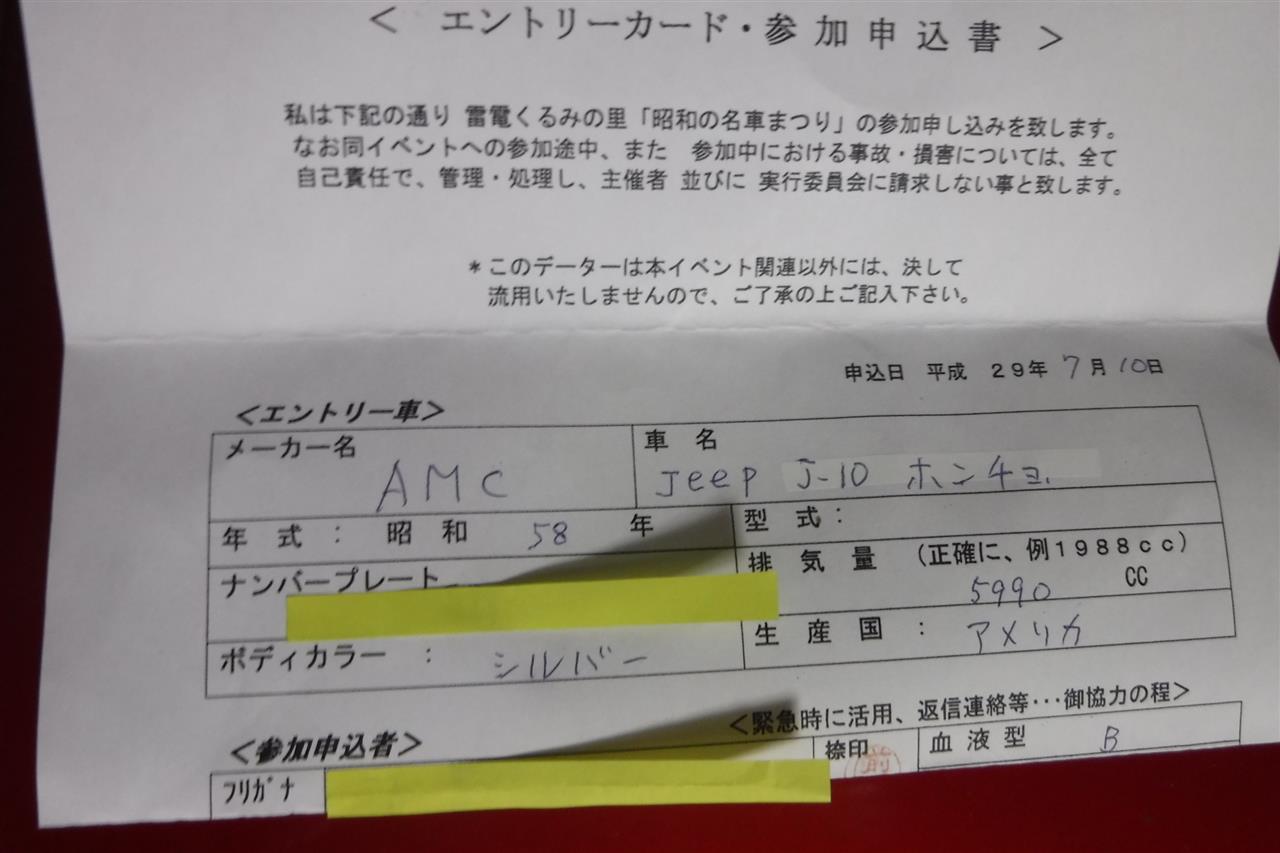 ＜ エントリーカード・参加申込書 ＞
私は下記の通り 雷電くるみの里「昭和の名車まつり」の参加申し込みを致します。
なお同イベントへの参加途中、また 参加中における事故・損害については、全て
自己責任で、管理・処理し、主催者 並びに 実行委員会に請求しない事と致します。
＊このデーターは本イベント関連以外には、決して
流用いたしませんので、ご了承の上ご記入下さい。
申込日 平成 29年 7月 10日
＜エントリー車＞
メーカー名
AMC
車 名
Jeep J-10 ホンチョ.
年 式 ： 昭 和 58 年
型 式：
ナンバープレート
排 気 量 （正確に、例1988cc）
5990 CC
ボディカラー ： シルバー
生 産 国 ： アメリカ
＜緊急時に活用、返信連絡等･･･御協力の程＞
＜参加申込者＞
ﾌﾘｶﾞﾅ
捺印
血 液 型 B